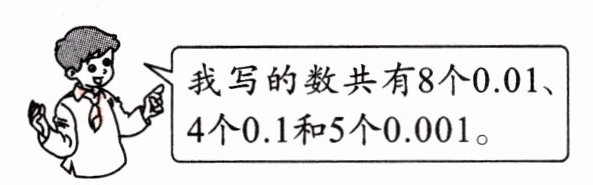 我写的数共有8个0.01、
4个0.1和5个0.001。